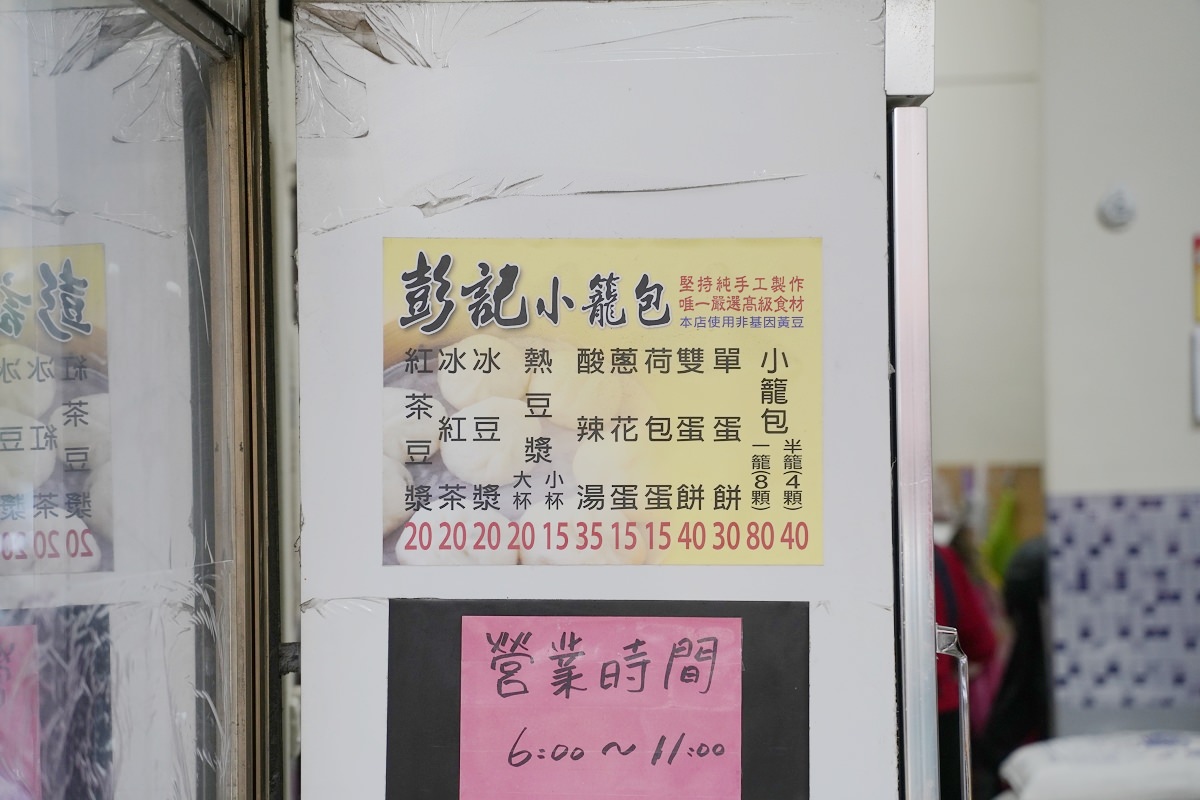 彭記小籠包
堅持純手工製作
唯一嚴選高級食材
本店使用非基因黃豆
小籠包
半籠(4顆) 40
一籠(8顆) 80
單蛋餅 30
雙蛋餅 40
荷包蛋 15
蔥花蛋 15
酸辣湯 35
熱豆漿
小杯 15
大杯 20
冰豆漿 20
冰紅茶 20
紅茶豆漿 20
營業時間
6:00~11:00